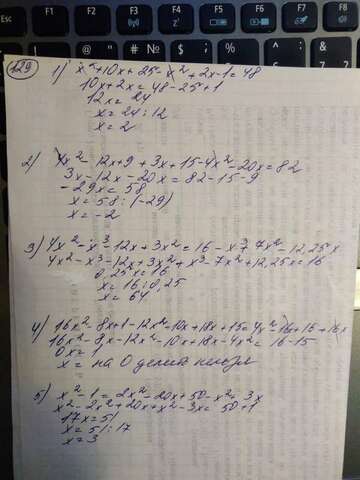 F5 F6 F7 F8 F9 F10 F11 F12
129
1) x²+10x+25-x²+2x-1=48
10x+2x=48-25+1
12x=24
x=24:12
x=2
2) 4x²-12x+9+3x+15-4x²-20x=82
3x-12x-20x=82-15-9
-29x=58
x=58:(-29)
x=-2
3) 4x²-x³-12x+3x²=16-x³+7x²-12,25x
4x²-x³-12x+3x²+x³-7x²+12,25x=16
0,25x=16
x=16:0,25
x=64
4) 16x²-8x+1-12x²-10x+18x+15=4x²-16+16+16x
16x²-8x-12x²-10x+18x-4x²=16-15
0x=1
x= на 0 делит нельзя
5) x²-1=2x²-20x+50-x²-3x
x²-2x²+20x+x²-3x=50+1
17x=51
x=51:17
x=3